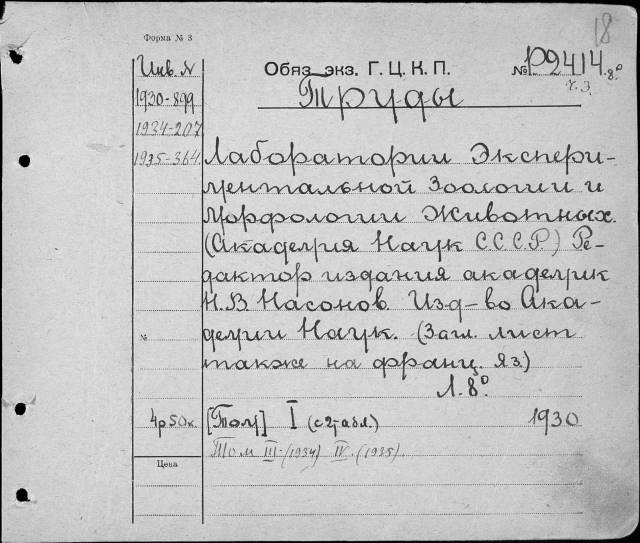 18
Форма № 3
Инв. N
Обяз. экз. Г. Ц. К. П.
№ P2414.8°
ч.з.
1930-899
Труды
1934-207
1935-364
Лаборатории Экспери-
ментальной Зоологии и
Морфологии Животных.
(Академия Наук С.С.С.Р.) Ре-
дактор издания академик
Н.В. Насонов. Изд-во Ака-
демии Наук. (Загл. лист
№
также на франц. яз.)
Л. 8°
4р50к.
[Том] I (с 2 табл.) 1930
Том III-(1934) IV. (1935).
Цена